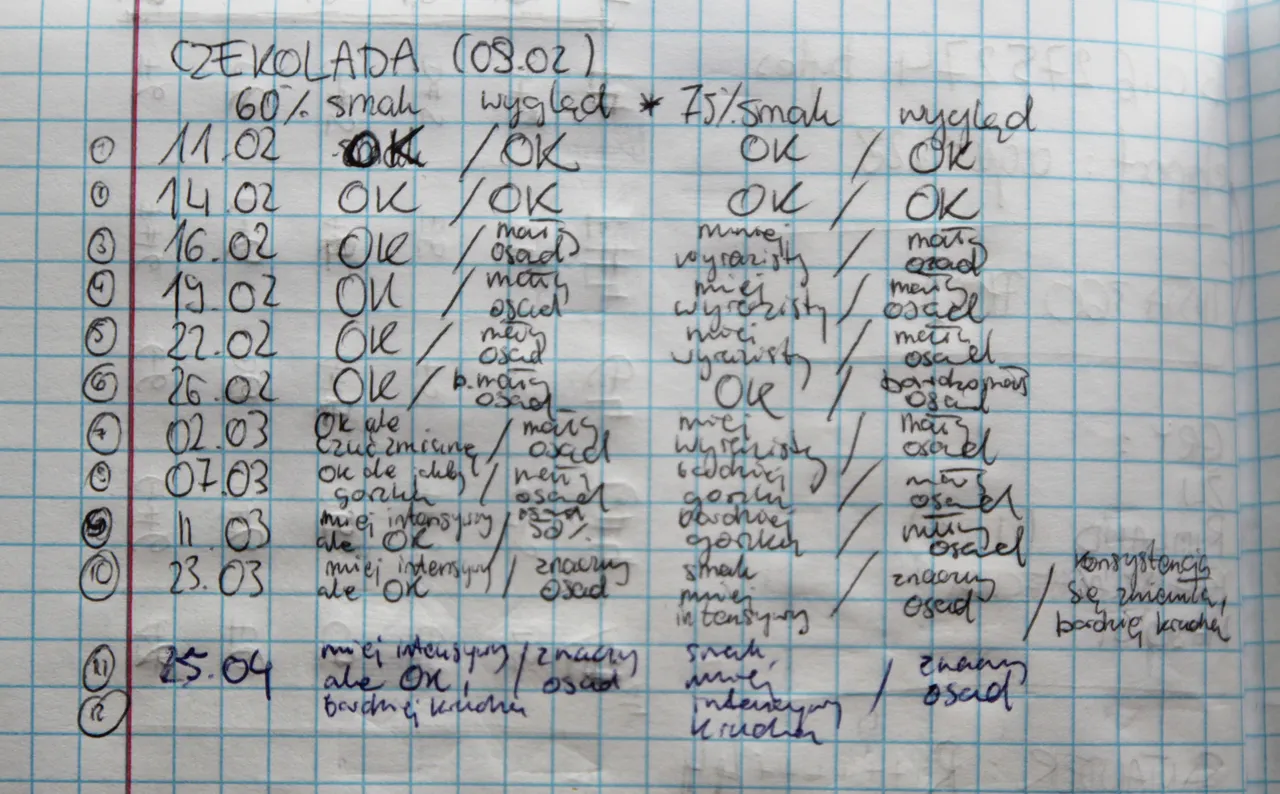 CZEKOLADA (09.02)
60% smak wygląd * 75% smak wygląd
1 11.02 OK / OK OK / OK
14.02 OK / OK OK / OK
3 16.02 OK / mały osad mniej wyrazisty / mały osad
4 19.02 OK / mały osad miej wyrazisty / mały osad
5 22.02 OK / mały osad miej wyrazisty / mały osad
6 26.02 OK / b. mały osad OK / bardzo mały osad
7 02.03 OK ale czuć zmianę / mały osad miej wyrazisty / mały osad
07.03 OK ale jakby gorzka / mały osad bardziej gorzka / mały osad
9 11.03 miej intensywy ale OK / osad 50% bardziej gorzka / mały osad
10 23.03 miej intensywy ale OK / znaczny osad smak miej intensywy / znaczny osad / konsystencja się zmieniła, bardziej krucha
11 25.04 miej intensywy ale OK, bardziej krucha / znaczny osad smak, miej intensywy krucha / znaczny osad
12